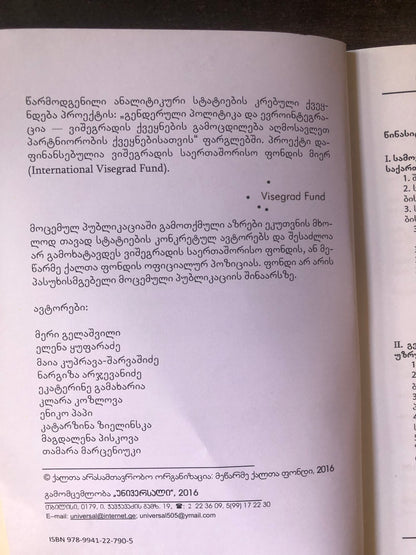 წარმოდგენილი ანალიტიკური სტატიების კრებული ქვეყ-
ნდება პროექტის: „გენდერული პოლიტიკა და ევროინტეგრა-
ცია — ვიშეგრადის ქვეყნების გამოცდილება აღმოსავლეთ
პარტნიორობის ქვეყნებისათვის“ ფარგლებში. პროექტი და-
ფინანსებულია ვიშეგრადის საერთაშორისო ფონდის მიერ
(International Visegrad Fund).
Visegrad Fund
მოცემულ პუბლიკაციაში გამოთქმული აზრები ეკუთვნის მხო-
ლოდ თავად სტატიების კონკრეტულ ავტორებს და შესაძლოა
არ გამოხატავდეს ვიშეგრადის საერთაშორისო ფონდის, ან მე-
წარმე ქალთა ფონდის ოფიციალურ პოზიციას. ფონდი არ არის
პასუხისმგებელი მოცემული პუბლიკაციის შინაარსზე.
ავტორები:
მერი გელაშვილი
ელენა ყუფარაძე
მაია კუპრავა-შარვაშიძე
ნარგიზა არჯევანიძე
ეკატერინე გამახარია
კლარა კოზლოვა
ენიკო პაპი
კატარზინა ზიელინსკა
მაგდალენა პისკოვა
თამარა მარცენიუკი
© ქალთა არასამთავრობო ორგანიზაცია: მეწარმე ქალთა ფონდი, 2016
გამომცემლობა „უნივერსალი“, 2016
თბილისი, 0179, ი. ჭავჭავაძის გამზ. 19, ☎: 2 22 36 09, 5(99) 17 22 30
E-mail: universal@internet.ge; universal505@ymail.com
ISBN 978-9941-22-790-5
წინასი
I. სამო
საქართ
1. შ
2. ს
ბის
3. ს
ბის
II. გე
უზრუ
1.
2